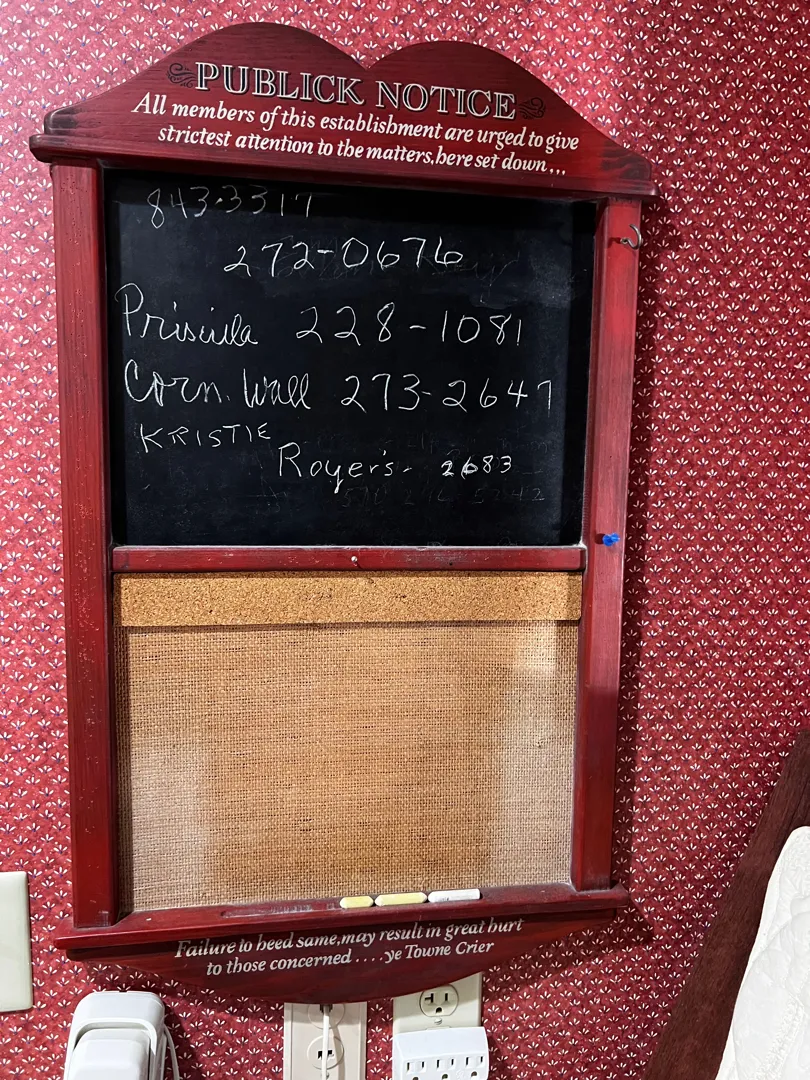 PUBLICK NOTICE
All members of this establishment are urged to give
strictest attention to the matters, here set down...
843-3317
272-0676
Priscilla 228-1081
Corn. Wall 273-2647
KRISTIE
Royer's- 2683
Failure to heed same, may result in great hurt
to those concerned .... ye Towne Crier